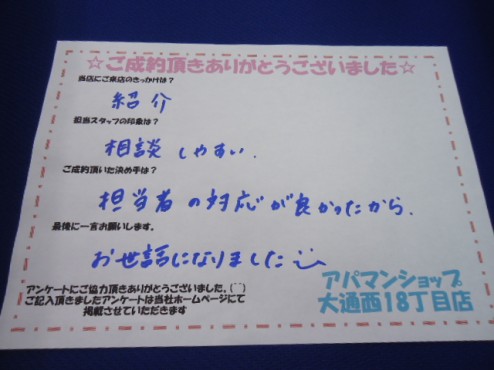 ☆ご成約頂きありがとうございました☆
当店にご来店のきっかけは？
紹介
担当スタッフの印象は？
相談しやすい.
ご成約頂いた決め手は？
担当者の対応が良かったから.
最後に一言お願いします。
お世話になりました
アンケートにご協力頂きありがとうございました。(^^)
ご記入頂きましたアンケートは当社ホームページにて
掲載させていただきます
アパマンショップ
大通西18丁目店